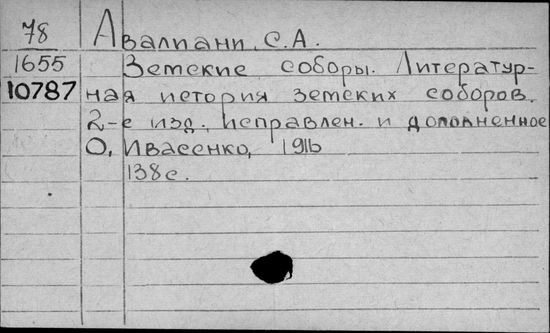 78 Авалиани, С.А.
1655 Земские соборы. Литератур-
10787 ная история земских соборов.
2-е изд., исправлен. и дополненное
О, Ивасенко, 1916
138с.